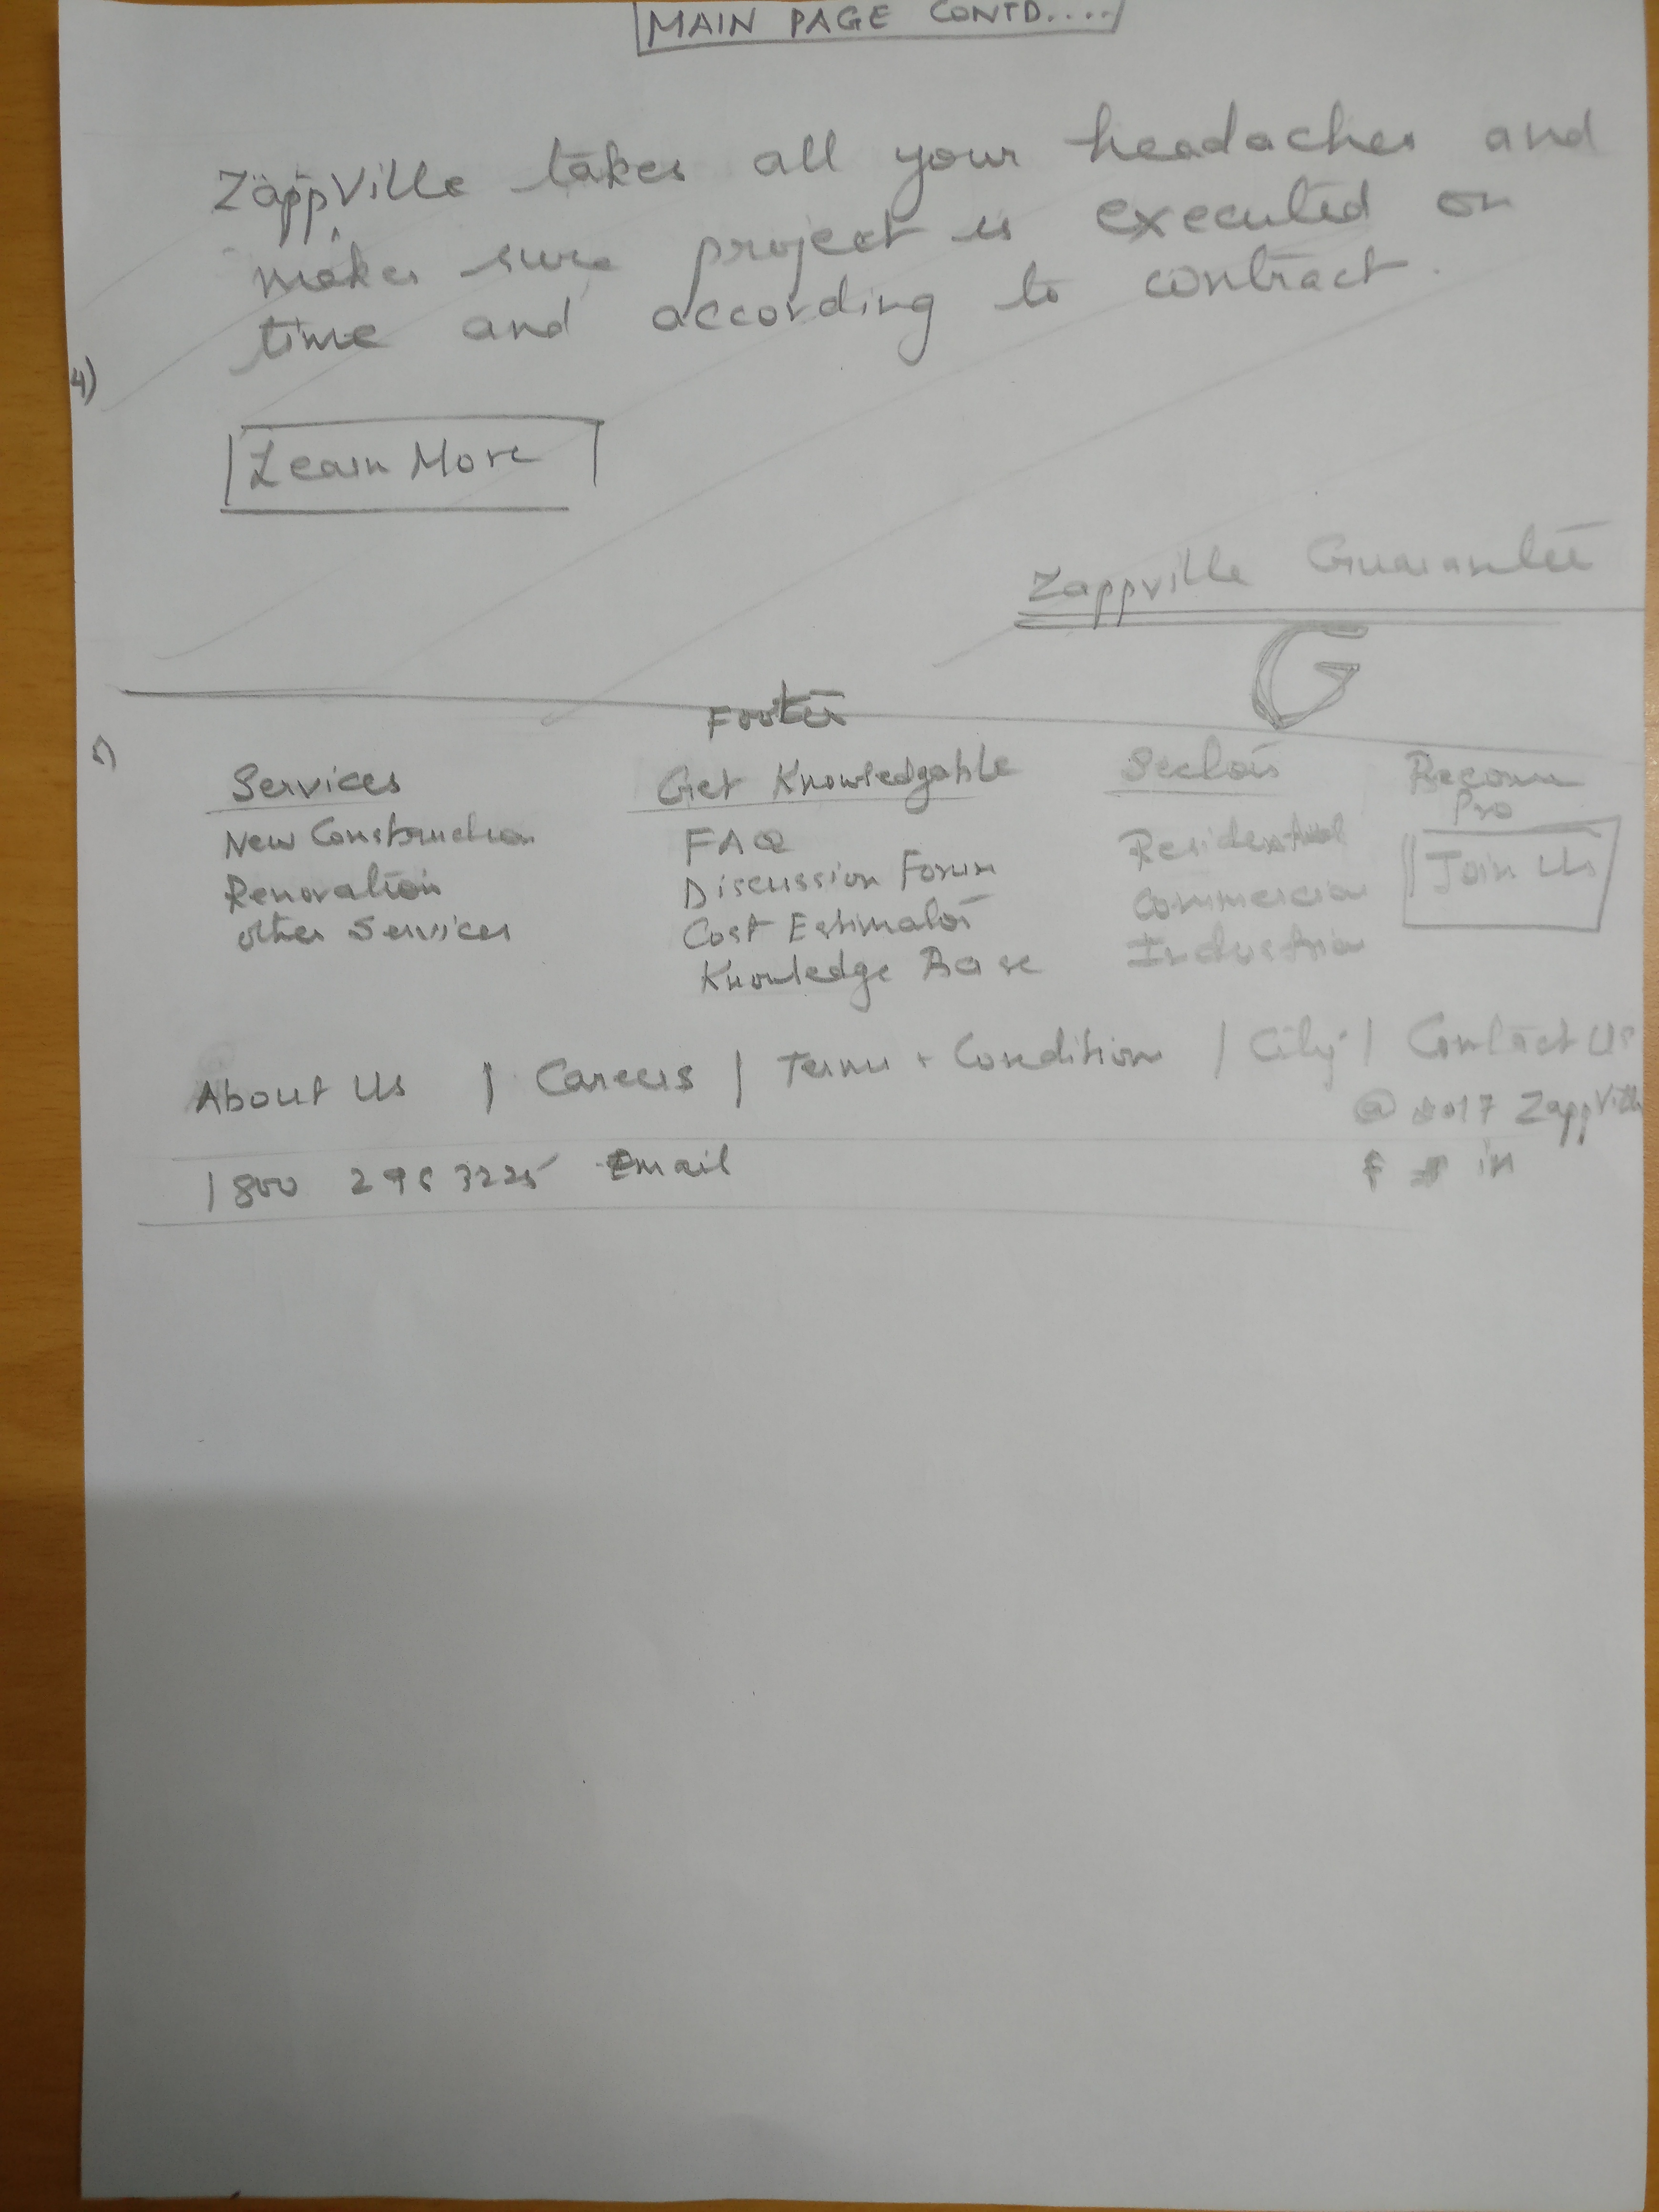 MAIN PAGE CONTD....
ZappVille takes all your headaches and
makes sure project is executed on
time and according to contract.
4)
Learn More
Zappville Guarantee
G
Footer
5)
Services
New Construction
Renovation
Other Services
Get Knowledgable
FAQ
Discussion Forum
Cost Estimator
Knowledge Base
Sectors
Residential
Commercial
Industrial
Become
Pro
Join Us
About Us | Careers | Terms + Condition | City | Contact Us
@ 2017 ZappVille
1800 296 3225 Email
f in